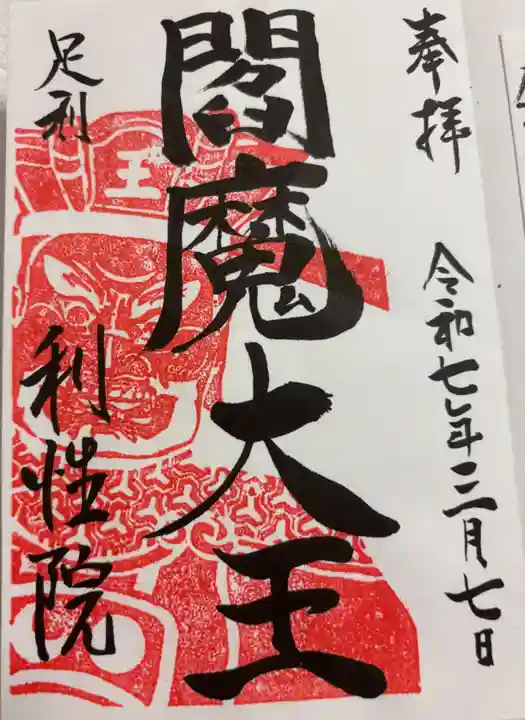 奉拝
令和七年三月七日
閻魔大王
王
足利
利性院